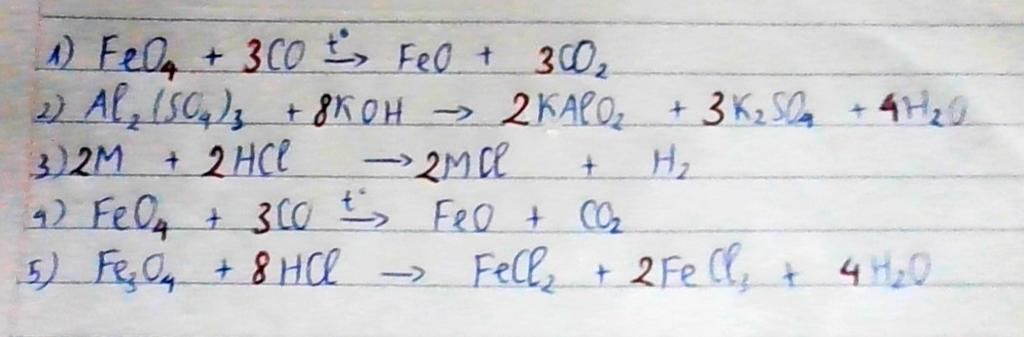 1) FeO₄ + 3CO t° → FeO + 3CO₂
2) Al₂(SO₄)₃ + 8KOH → 2KAlO₂ + 3K₂SO₄ + 4H₂O
3) 2M + 2HCl → 2MCl + H₂
4) FeO₄ + 3CO t° → FeO + CO₂
5) Fe₃O₄ + 8HCl → FeCl₂ + 2FeCl₃ + 4H₂O